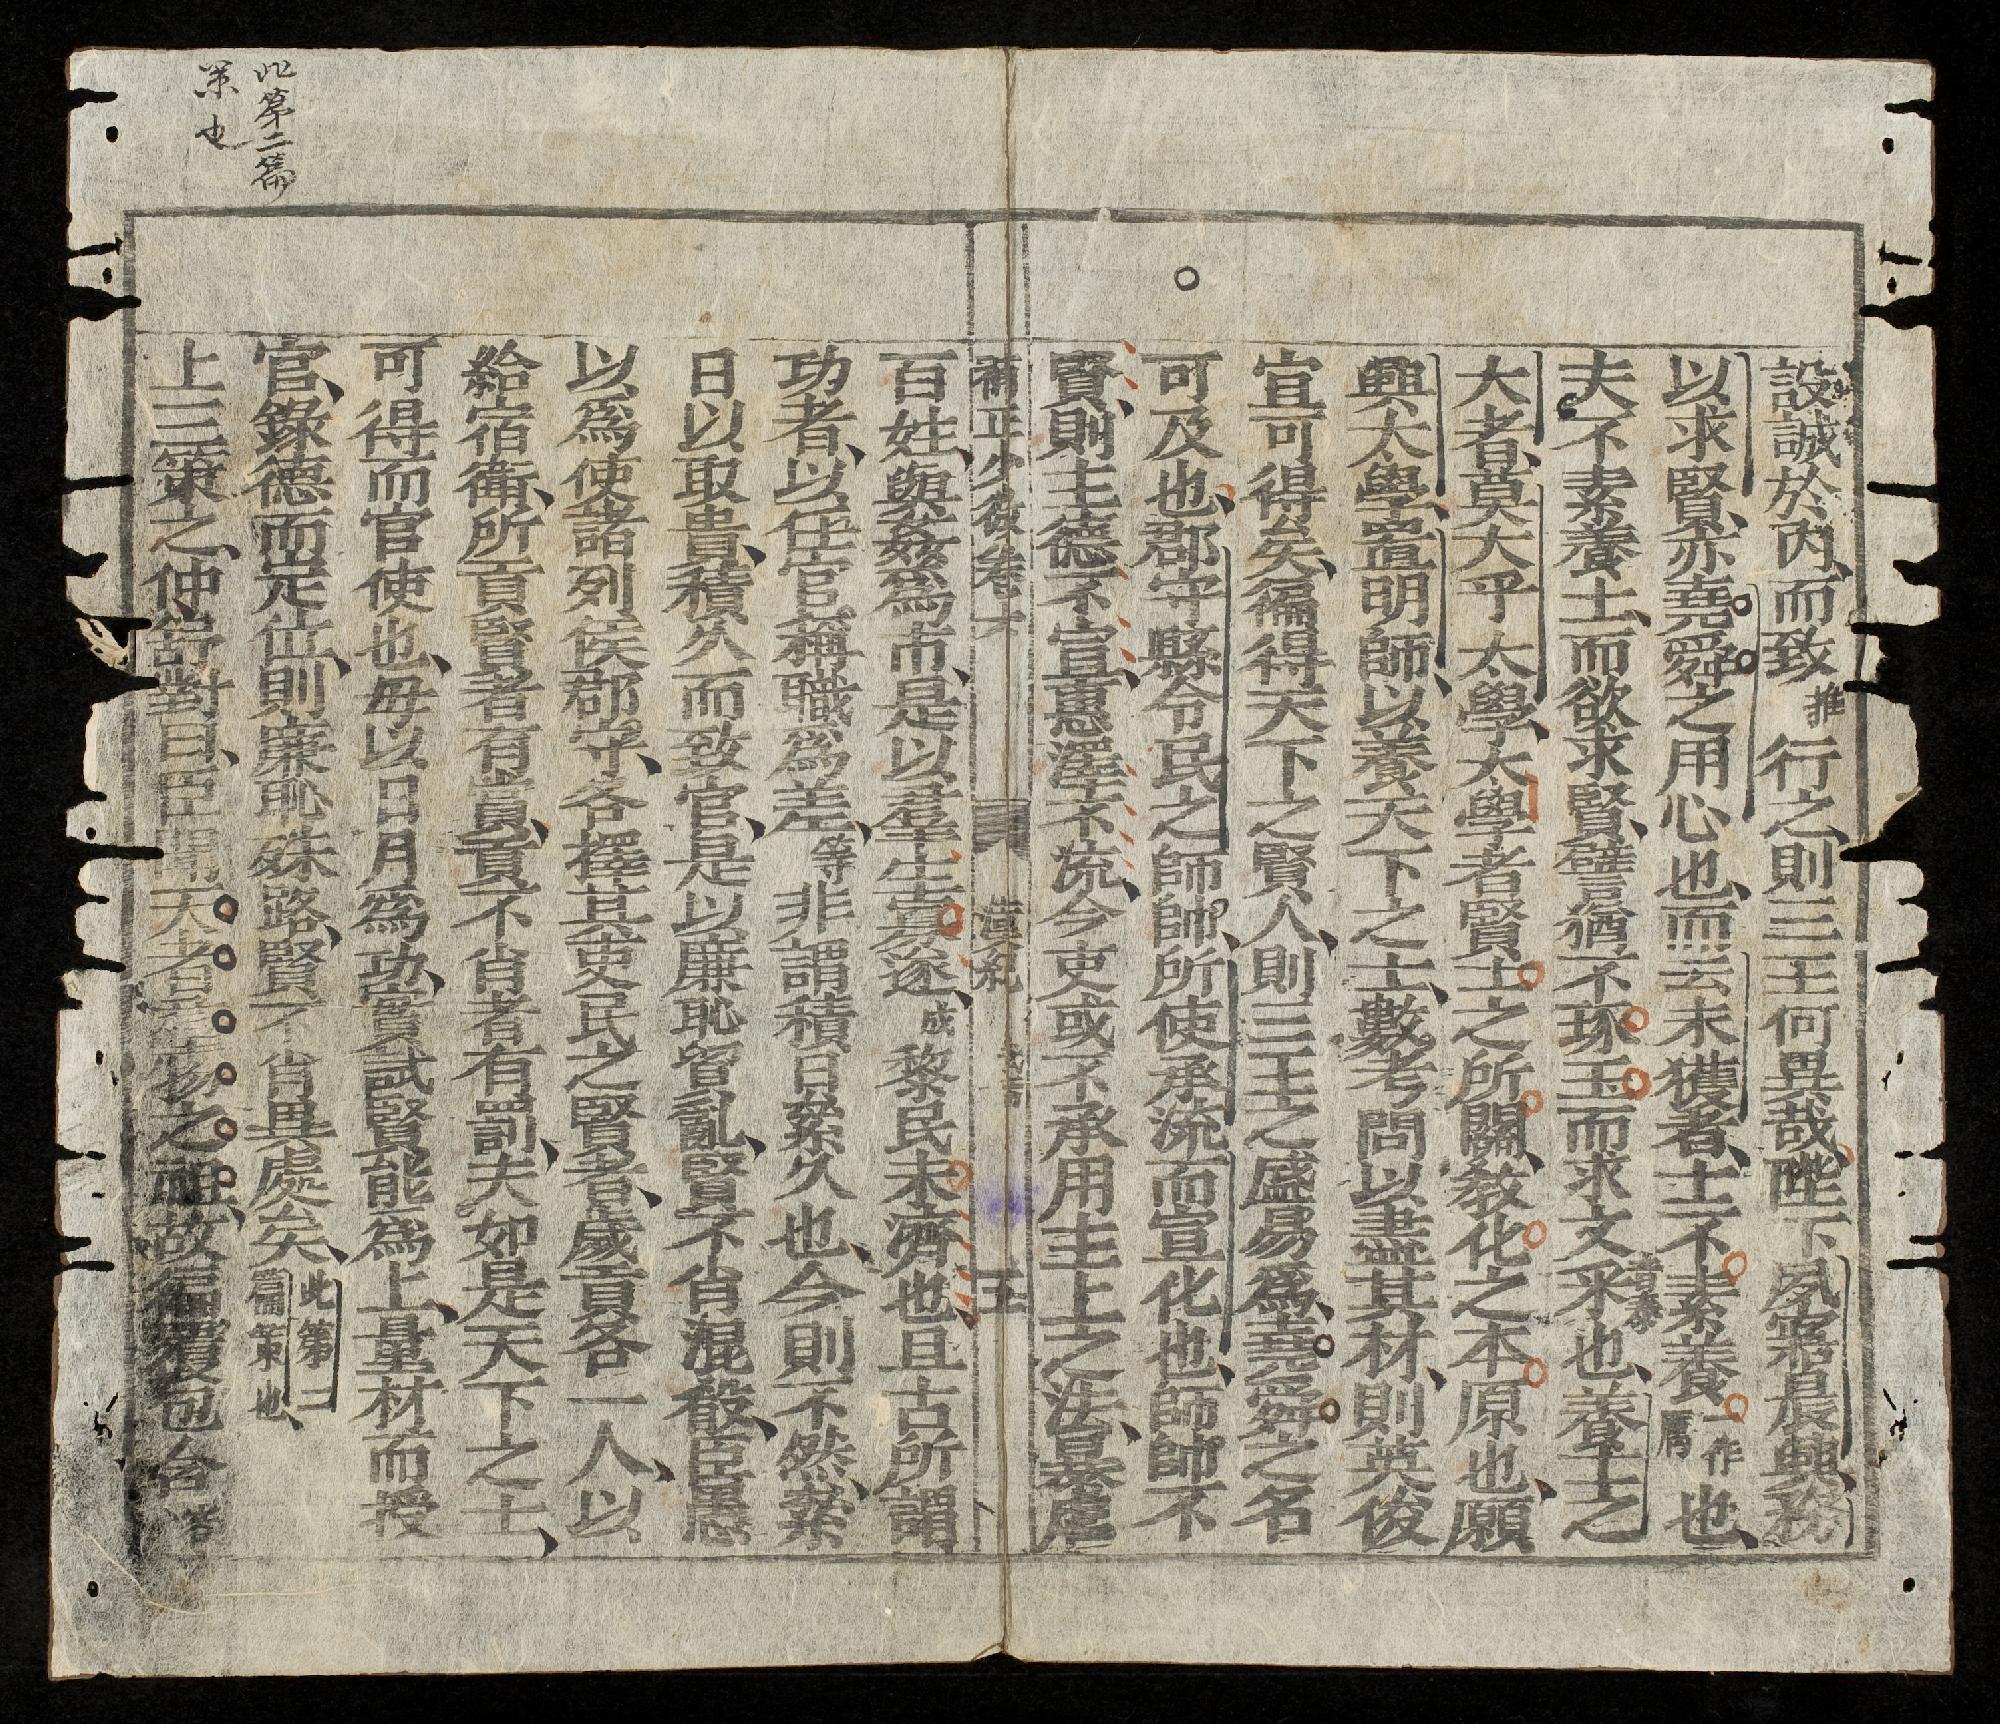 設誠於內而致推行之則三王何異哉陛下夙寤晨興務
以求賢亦堯舜之用心也而云未獲者士不素養一作厲也
夫不素養士而欲求賢譬猶不琢玉而求文采也養士之
音泰
大者莫大乎太學太學者賢士之所關敎化之本原也願
興太學置明師以養天下之士數考問以盡其材則英俊
宜可得矣徧得天下之賢人則三王之盛易爲堯舜之名
可及也郡守縣令民之師師所使承流而宣化也師師不
賢則主德不宣惠澤不流今吏或不承用主上之法暴虐
補正少微卷 漢紀 五
百姓與姦爲市是以羣生寡遂成黎民未濟也且古所謂
功者以任官稱職爲差等非謂積日絫久也今則不然絫
日以取貴積久而致官是以廉恥貿亂賢不肖混殽臣愚
以爲使諸列侯郡守各擇其吏民之賢者歲貢各一人以
給宿衛所貢賢者有賞貢不肖者有罰夫如是天下之士
可得而官使也毋以日月爲功實試賢能爲上量材而授
官錄德而定位則廉恥殊路賢不肖異處矣此第二篇策也
上三策之仲舒對曰臣聞天者羣物之祖故徧覆包含
此第二篇
策也